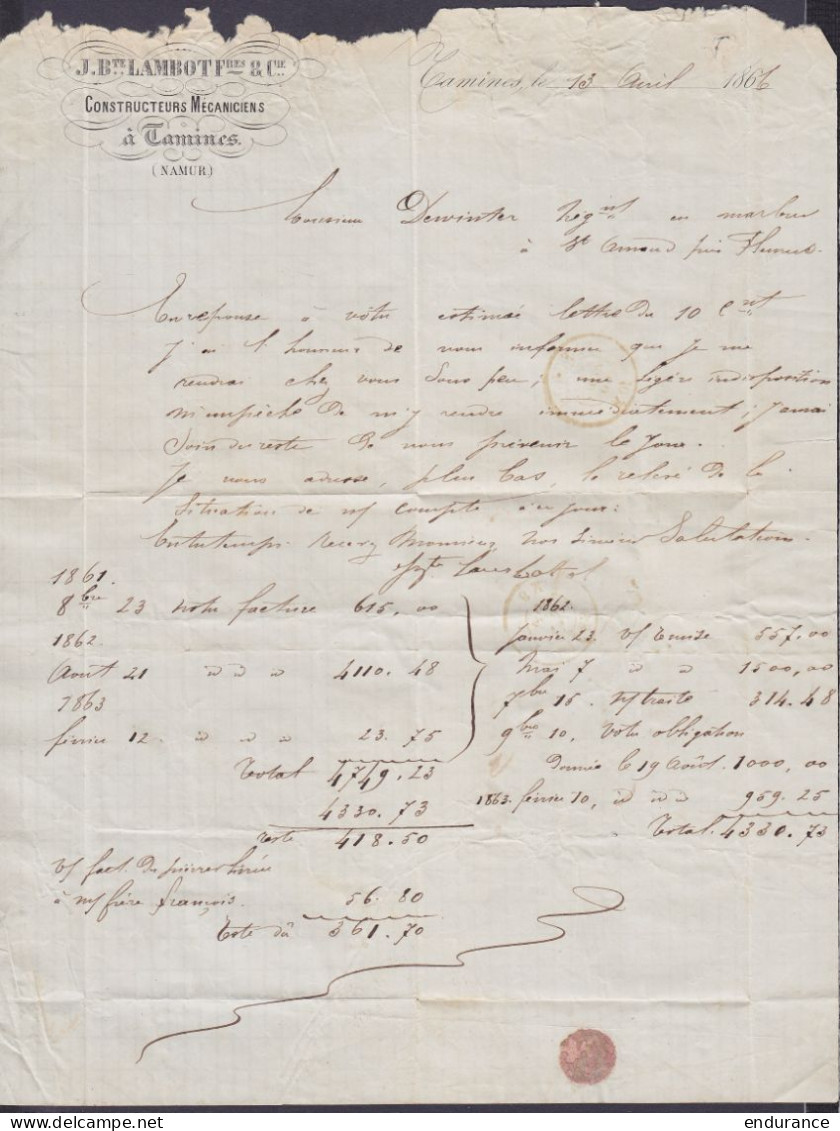 J. Bte LAMBOT Fres & Cie
CONSTRUCTEURS MÉCANICIENS
à Tamines.
(NAMUR)
Tamines, le 13 Avril 1866
Monsieur Dewinter Négnt en marbre
à St Amand près Fleurus.
En réponse à vôtre estimée lettre du 10 Crt
j'ai l'honneur de vous informer que je me
rendrai chez vous sous peu; une légère indisposition
m'empêche de m'y rendre immédiatement; j'aurai
soin du reste de vous prévenir le jour.
Je vous adresse, plus bas, le relevé de la
situation de n/ compte à ce jour:
Entretemps recevez Monsieur nos sincères Salutations.
Lambot
1861.
8bre 23 notre facture 615,00
1862.
Août 21 " " " 4110.48
1863
février 12. " " " 23.75
Total 4749.23
4330.73
reste 418.50
v/ fact. de pierre livrée
à m/ frère françois. 56.80
Reste dû 361.70
1862.
Janvier 23. v/ remise 557.00
Mai 7 " " 1500,00
7bre 15. n/ traite 314.48
9bre 10, Votre obligation
donnée le 19 Août. 1000,00
1863. février 10, " " " 959.25
Total. 4330.73
endurance